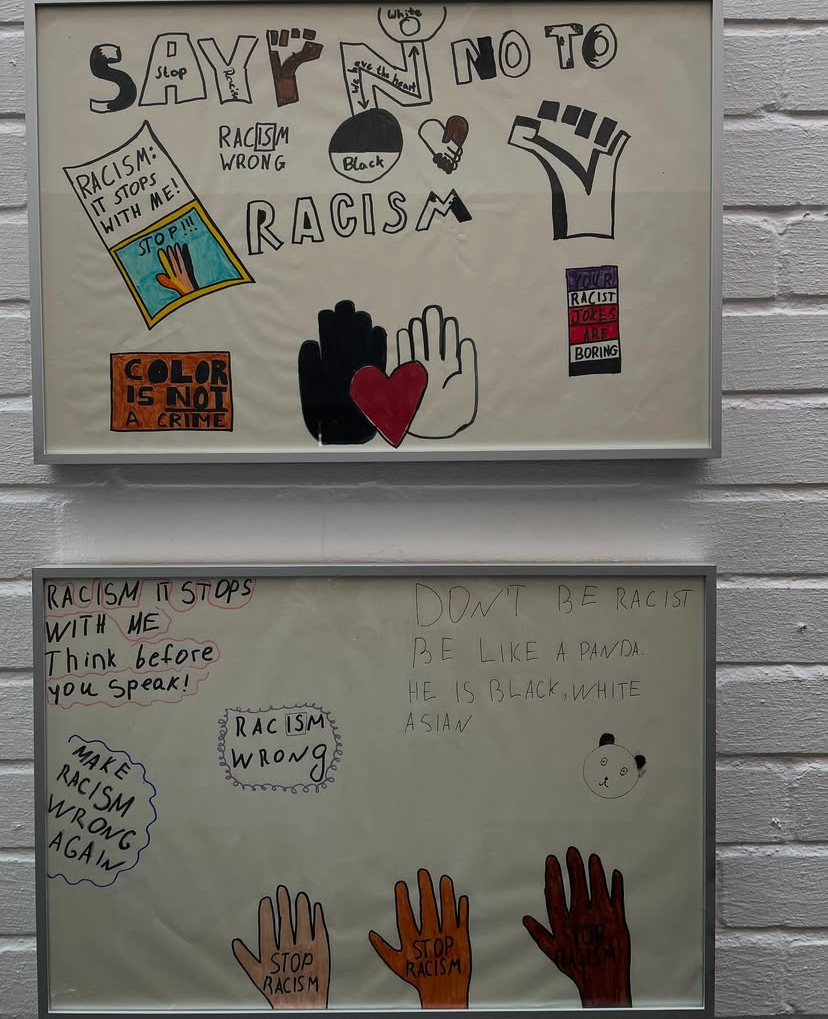 SAY NO TO
Stop
Racis
We have the heart
White
Black
RACISM
WRONG
RACISM:
IT STOPS
WITH ME!
STOP!!!
RACISM
YOUR
RACIST
JOKES
ARE
BORING
COLOR
IS NOT
A CRIME
RACISM IT STOPS
WITH ME
Think before
you speak!
DON'T BE RACIST
BE LIKE A PANDA.
HE IS BLACK, WHITE
ASIAN
RACISM
WRONG
MAKE
RACISM
WRONG
AGAIN
STOP
RACISM
STOP
RACISM
STOP
RACISM